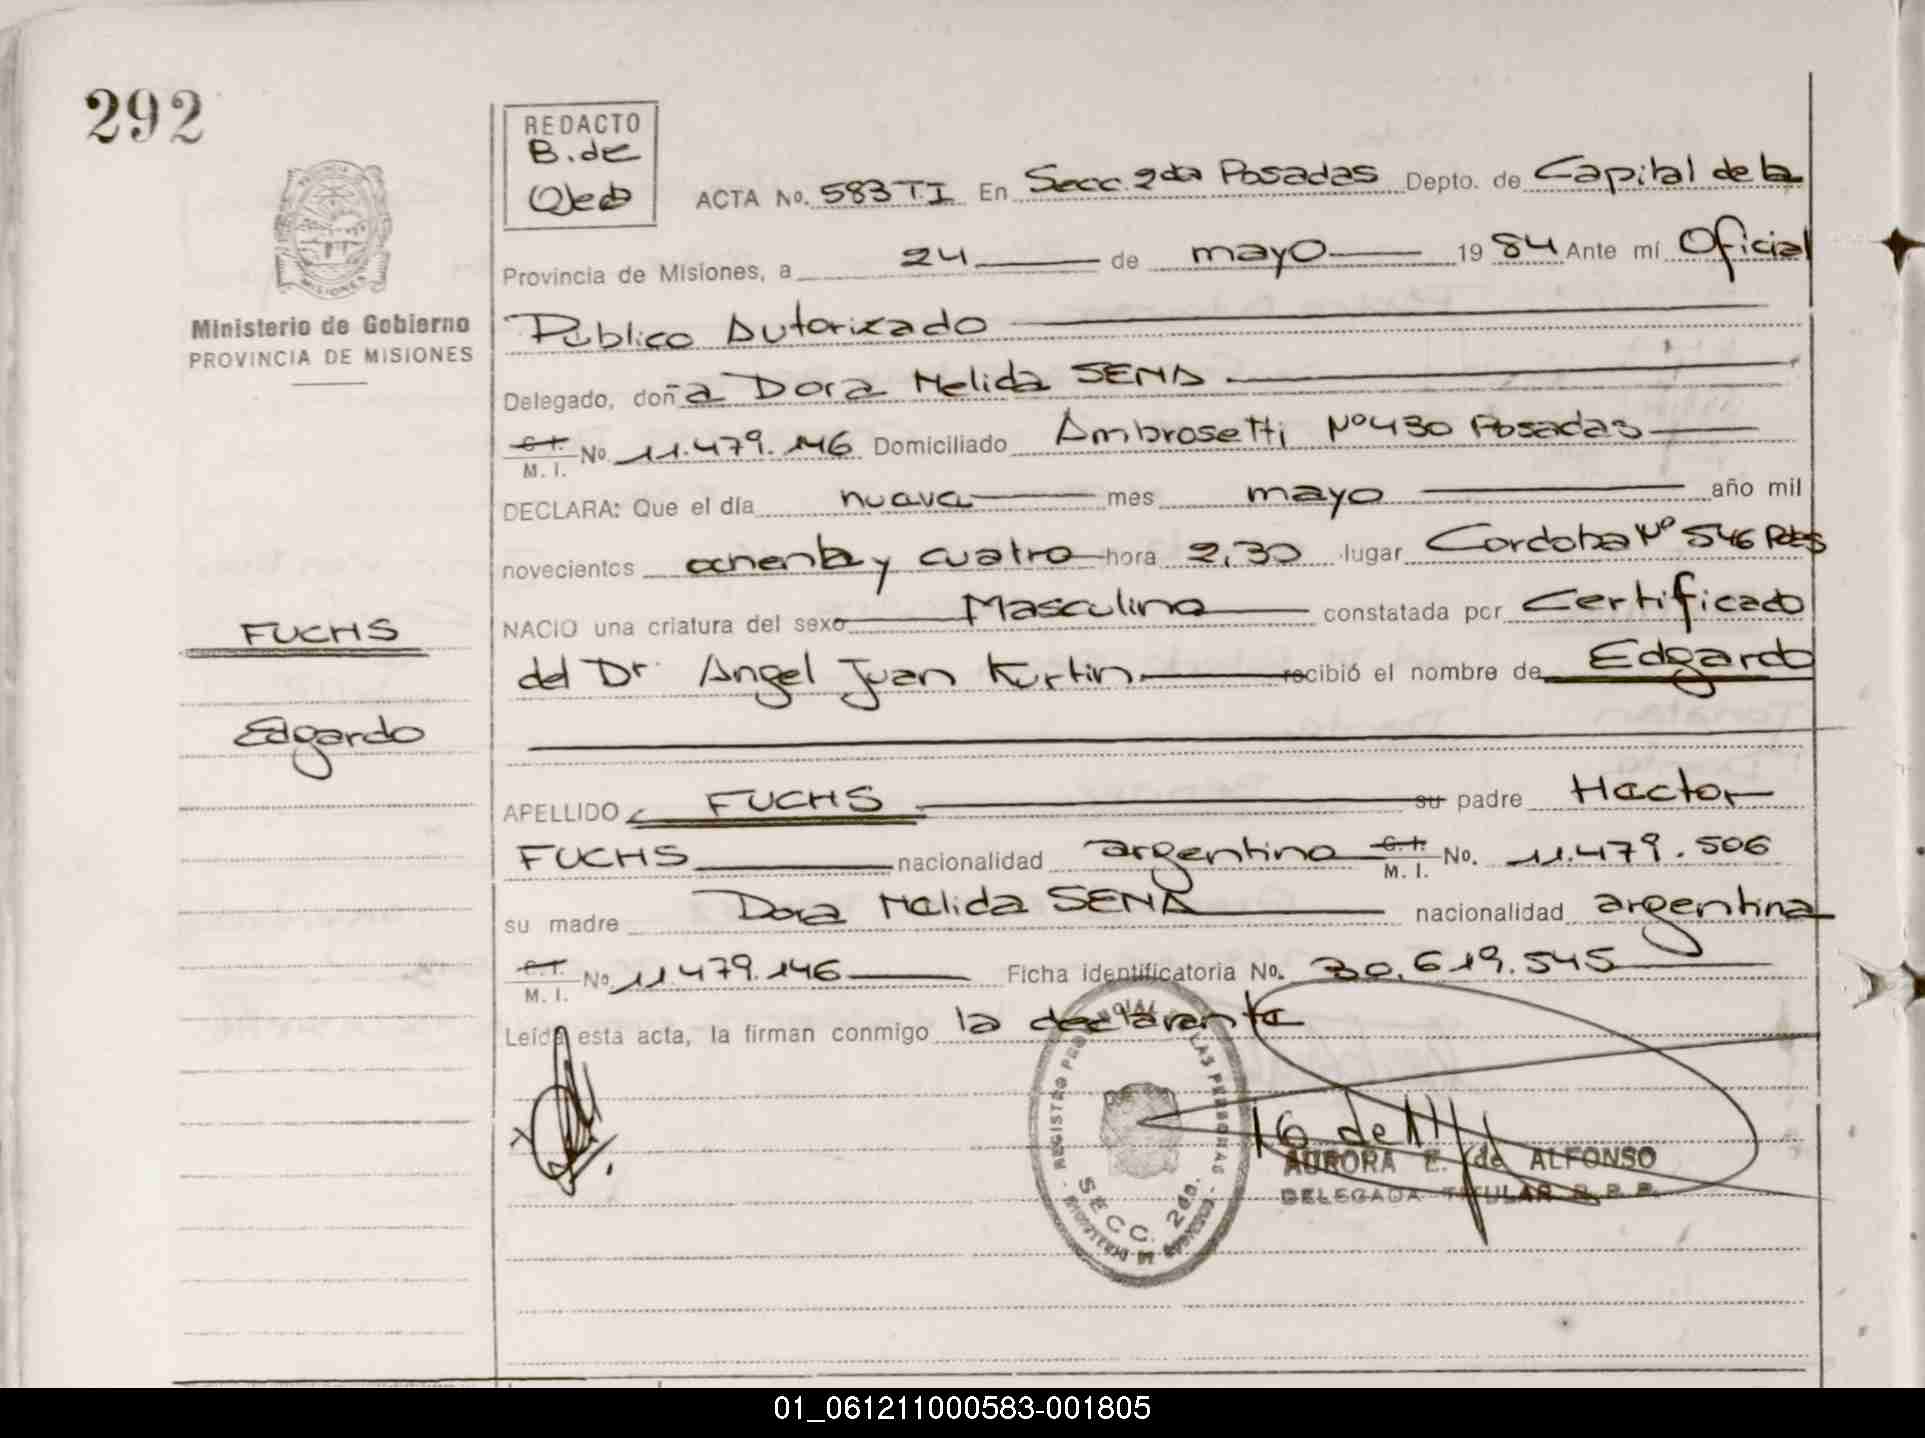 292
REDACTO
B. de
Ojeda
ACTA No. 583 T.I En Secc. 2da Posadas Depto. de Capital de la
Provincia de Misiones, a 24 de mayo 1984 Ante mí Oficial
Ministerio de Gobierno
PROVINCIA DE MISIONES
Público Autorizado
Delegado, doña Dora Nelida SENA
C.I. M.I. No 11.479.146 Domiciliado Ambrosetti Nº 430 Posadas
DECLARA: Que el día nueve mes mayo año mil
novecientos ochenta y cuatro hora 2,30 lugar Cordoba Nº 546 Pdas
NACIO una criatura del sexo Masculino constatada por Certificado
del Dr. Angel Juan Kurtin recibió el nombre de Edgardo
FUCHS
Edgardo
APELLIDO FUCHS su padre Hector
FUCHS nacionalidad argentino C.I. M.I. No. 11.479.506
su madre Dora Nelida SENA nacionalidad argentina
C.I. M.I. No 11.479.146 Ficha identificatoria No. 30.619.545
Leída esta acta, la firman conmigo la declarante
SECC. 2da.
AURORA E. de ALFONSO
DELEGADA TITULAR R. P. P.
01_061211000583-001805